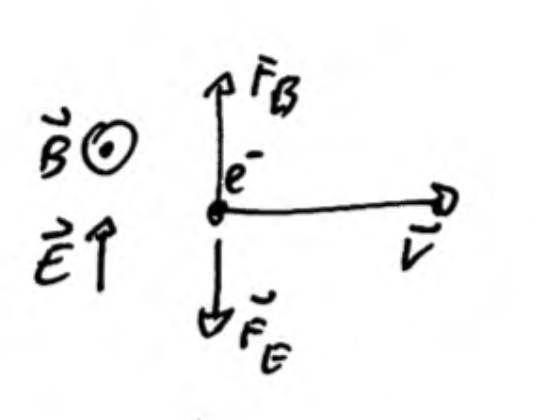 F⃗B
B⃗
e⁻
E⃗
V⃗
F⃗E